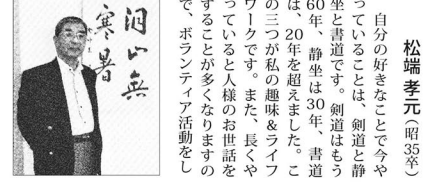 松端 孝元（昭35卒）
自分の好きなことで今や
っていることは、剣道と静
坐と書道です。剣道はもう
60年、静坐は30年、書道
は、20年を超えました。こ
の三つが私の趣味&ライフ
ワークです。また、長くや
っていると人様のお世話を
することが多くなりますの
で、ボランティア活動をし
洞山無
寒暑